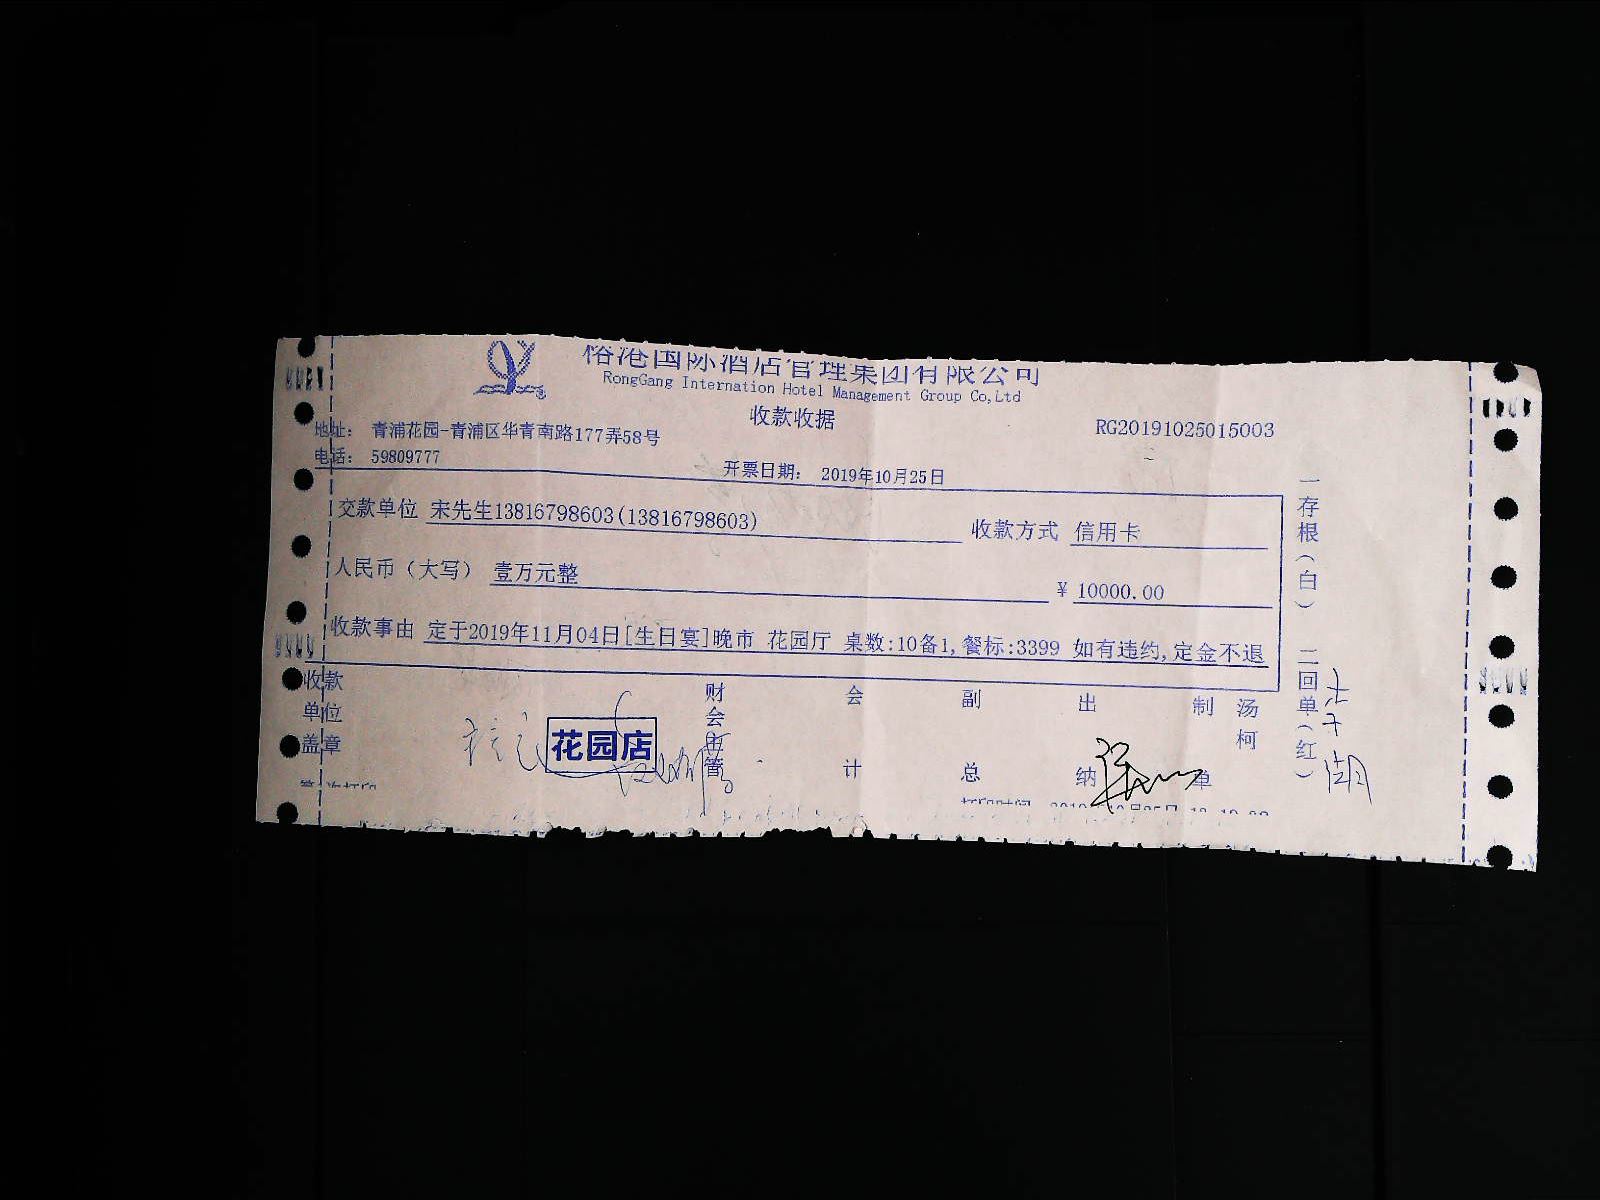 榕港国际酒店管理集团有限公司
RongGang Internation Hotel Management Group Co,Ltd
收款收据
RG20191025015003
地址： 青浦花园-青浦区华青南路177弄58号
电话： 59809777
开票日期： 2019年10月25日
交款单位 宋先生13816798603(13816798603)
收款方式 信用卡
人民币（大写） 壹万元整
¥ 10000.00
收款事由 定于2019年11月04日[生日宴]晚市 花园厅 桌数:10备1,餐标:3399 如有违约,定金不退
收款单位盖章
花园店
财会主管
会计
副总
出纳
制单
汤柯
一存根（白）
二回单（红）